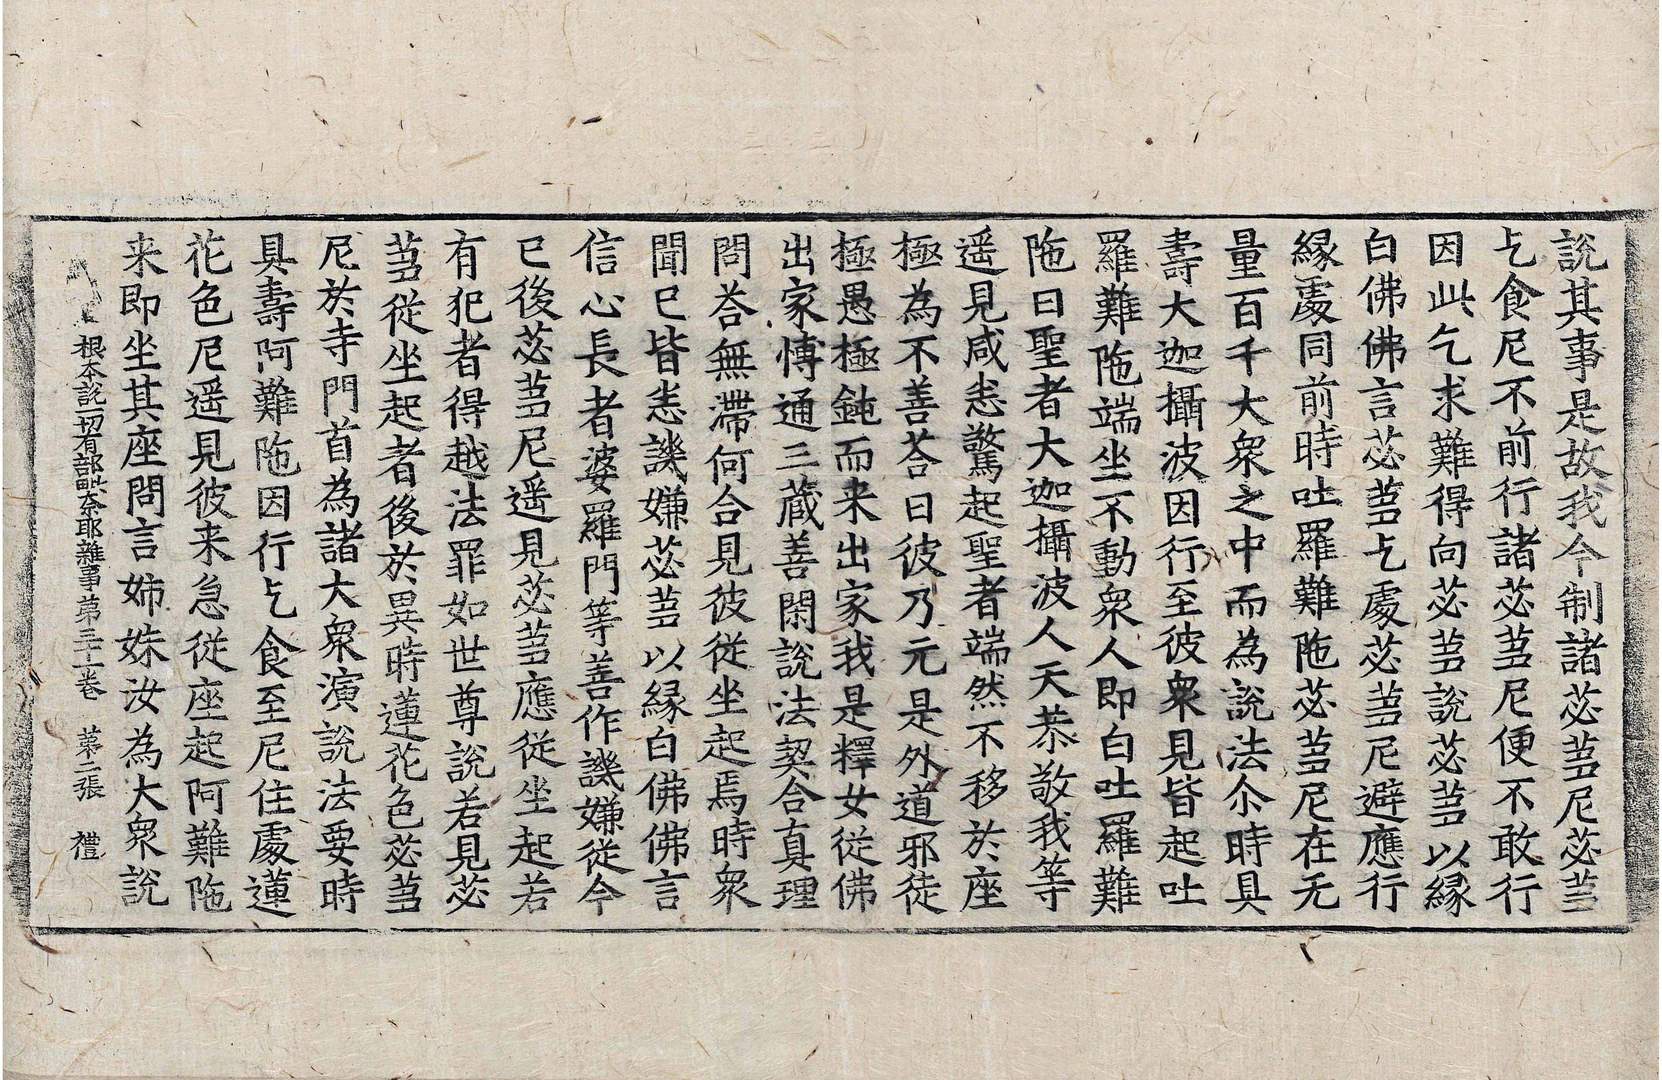 說其事是故我今制諸苾蒭尼苾蒭
乞食尼不前行諸苾蒭尼便不敢行
因此乞求難得向苾蒭說苾蒭以縁
白佛佛言苾蒭乞處苾蒭尼避應行
縁處同前時吐羅難陁苾蒭尼在无
量百千大衆之中而為說法尒時具
壽大迦攝波因行至彼衆見皆起吐
羅難陁端坐不動衆人即白吐羅難
陁曰聖者大迦攝波人天恭敬我等
遥見咸悉驚起聖者端然不移於座
極為不善荅曰彼乃元是外道邪徒
極愚極鈍而来出家我是釋女從佛
出家愽通三藏善閑說法契合真理
問荅無滯何合見彼從坐起焉時衆
聞已皆悉譏嫌苾蒭以縁白佛佛言
信心長者婆羅門等善作譏嫌從今
已後苾蒭尼遥見苾蒭應從坐起若
有犯者得越法罪如世尊說若見苾
蒭從坐起者後於異時蓮花色苾蒭
尼於寺門首為諸大衆演說法要時
具壽阿難陁因行乞食至尼住處蓮
花色尼遥見彼来急從座起阿難陁
来即坐其座問言姉妹汝為大衆說
根本說一切有部毗奈耶雜事第三十一卷 第二張 禮